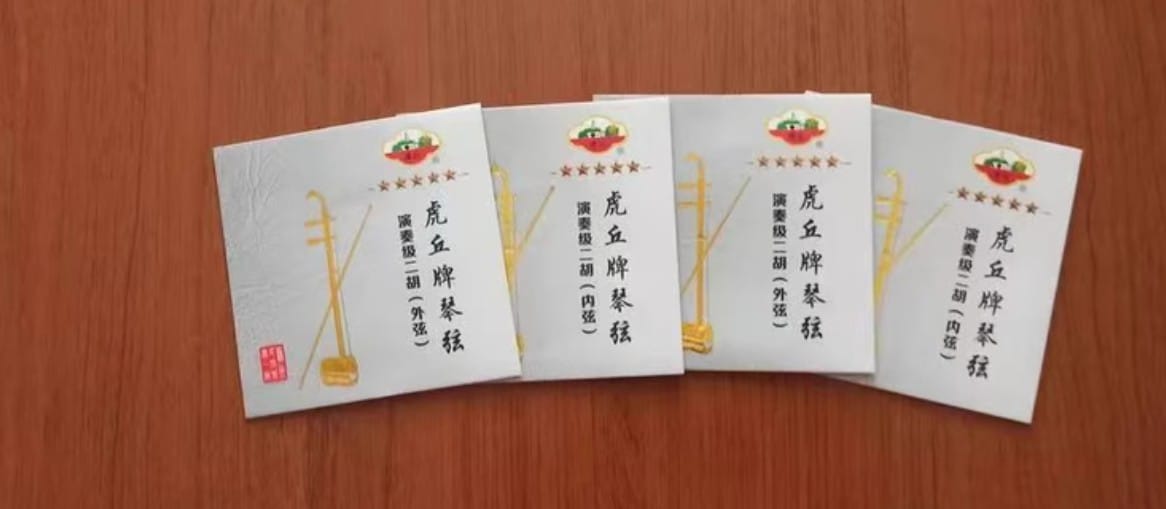 虎丘牌琴弦
演奏级二胡（外弦）
虎丘牌琴弦
演奏级二胡（内弦）
虎丘牌琴弦
演奏级二胡（外弦）
虎丘牌琴弦
演奏级二胡（内弦）